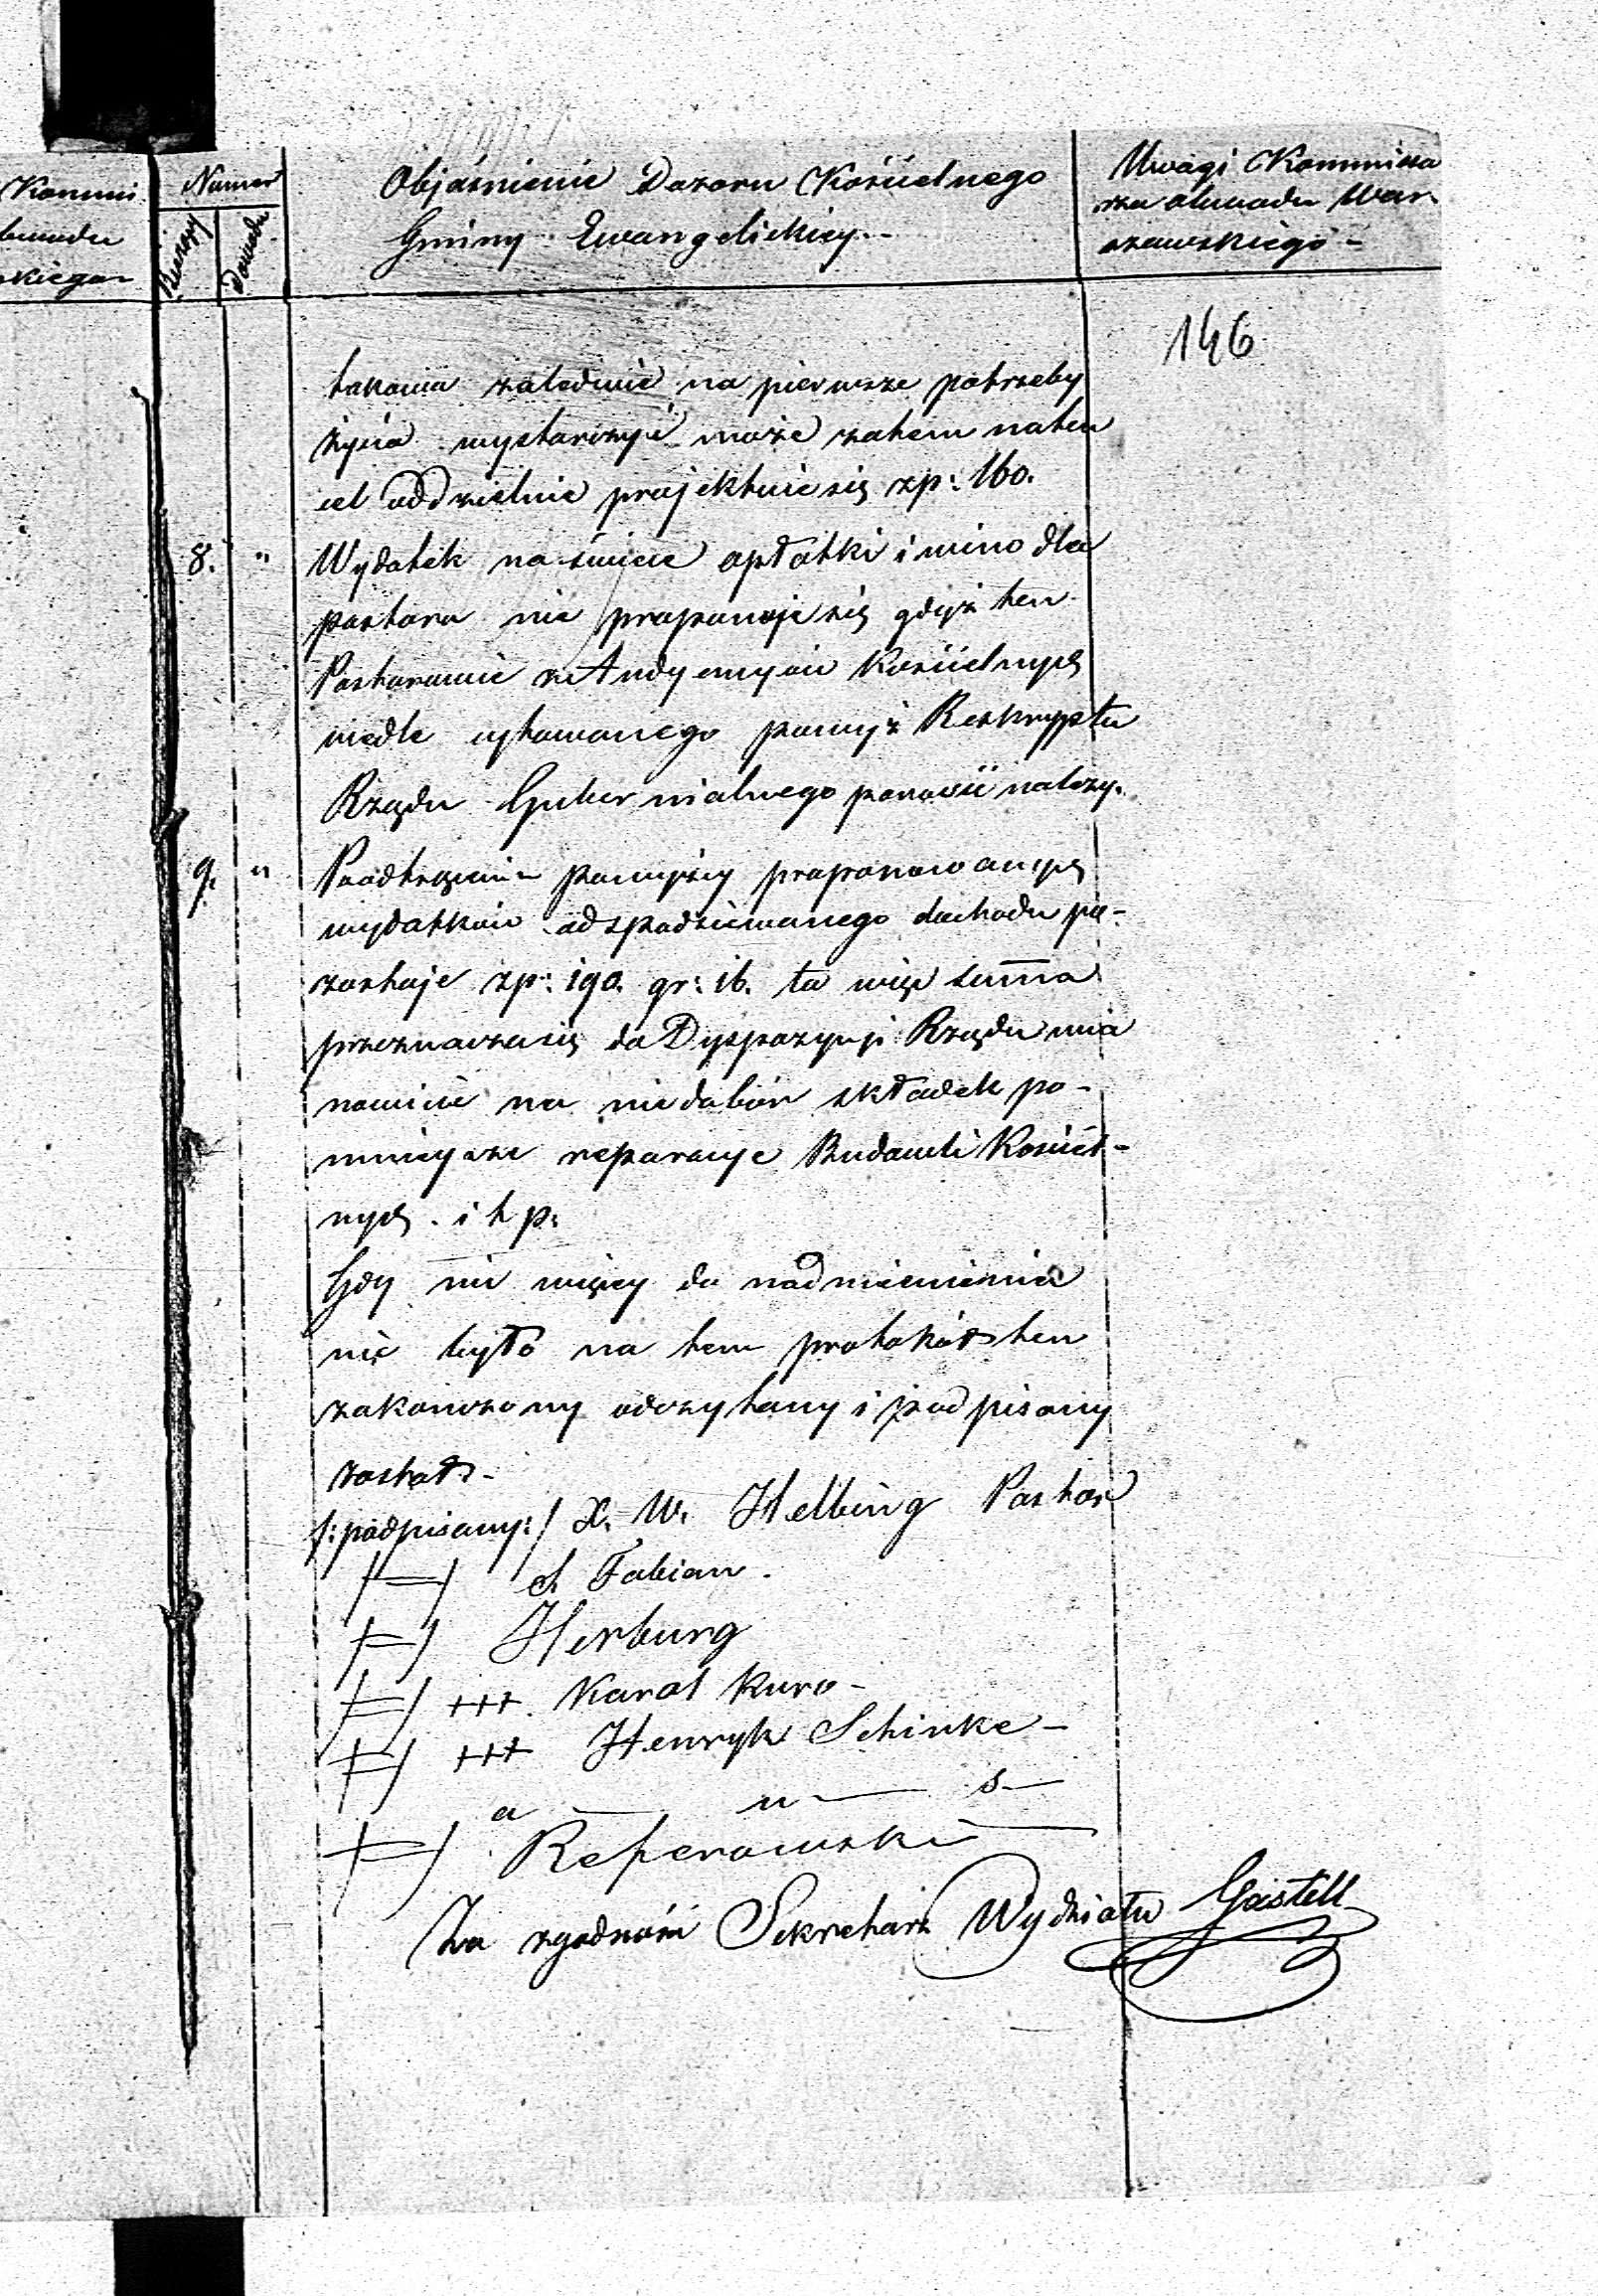 Kommi
bwodu
skiego
Numer
Bieżący
Dowodu
Objaśnienie Dozoru Kościelnego
Gminy Ewangelickiey
Uwagi Kommissa
rza obwodu War
szawskiego -
146
takowa zaledwie na pierwsze potrzeby
życia wystarczyć może zatem na ten
cel oddzielnie projektuie się zp: 160.
8. " Wydatek na świece opłatki i wino dla
pastora nie proponuje się gdyż ten
Pastorowie z Kościelnych
wedle cytowanego powyż Reskryptu
Rządu Gubernialnego ponosić należy.
9. " Po odtrąceniu powyższy proponowanych
wydatków od spodziewanego dochodu po-
zostaje zp: 190. gr: 16. ta więc summa
przeznacza się do Dyspozycyi Rządu mia
nowicie na niedobór składek po-
mnieysze reparacye Budowli Kościel-
nych. i t p:
Gdy nic więcy do nadmienienia
nie było na tem protokół ten
zakończony odczytany i podpisany
został -
/:podpisany:/ X. W. Helbing Pastor
/=/ Fabian.
/=/ Herburg
/=/ +++ Karol Kuro -
/=/ +++ Henryk Schinke -
a — u — s —
/=/ Referowski
Za zgodność Sekretarz Wydziału Gastell